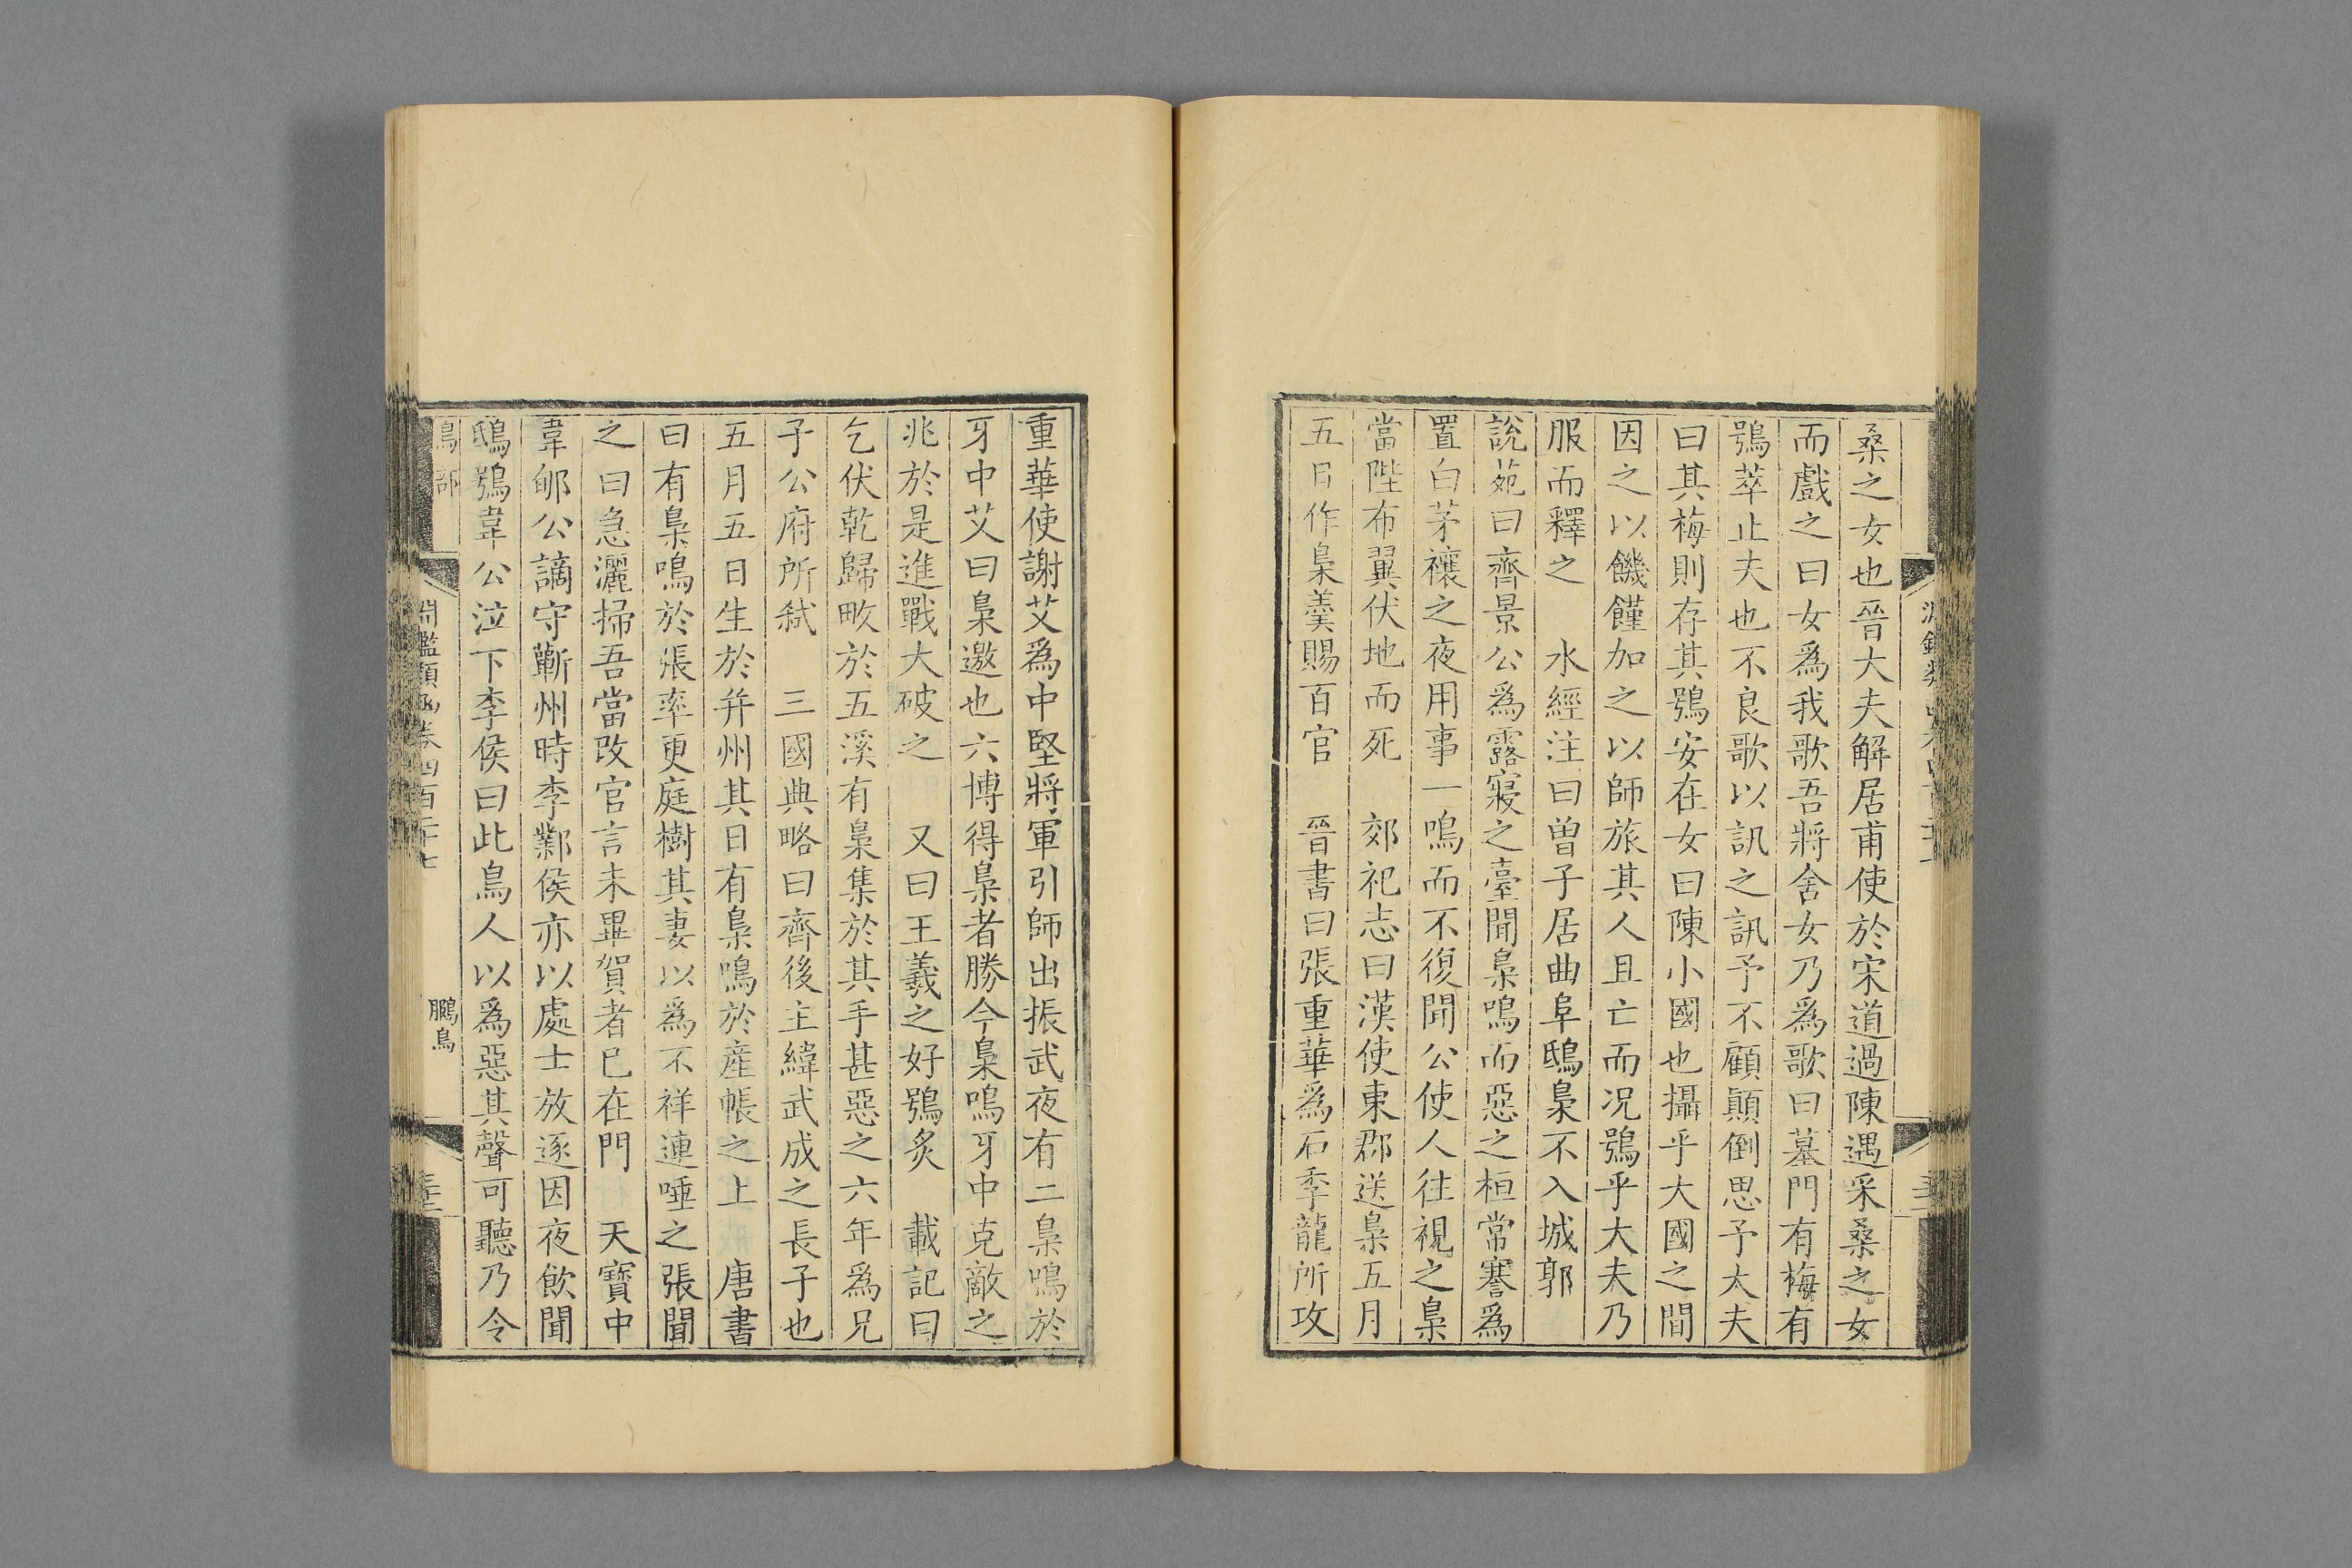 桑之女也晉大夫解居甫使於宋道過陳遇采桑之女
而戲之曰女爲我歌吾將舍女乃爲歌曰墓門有梅有
鴞萃止夫也不良歌以訊之訊予不顧顛倒思予大夫
曰其梅則存其鴞安在女曰陳小國也攝乎大國之間
因之以饑饉加之以師旅其人且亡而况鴞乎大夫乃
服而釋之 水經注曰曾子居曲阜鴟梟不入城郭
說苑曰齊景公爲露寢之臺聞梟鳴而惡之桓常騫爲
置白茅禳之夜用事一鳴而不復聞公使人往視之梟
當陛布翼伏地而死 郊祀志曰漢使東郡送梟五月
五日作梟羹賜百官 晉書曰張重華爲石季龍所攻
重華使謝艾爲中堅將軍引師出振武夜有二梟鳴於
牙中艾曰梟邀也六博得梟者勝今梟鳴牙中克敵之
兆於是進戰大破之 又曰王羲之好鴞炙 載記曰
乞伏乾歸畋於五溪有梟集於其手甚惡之六年爲兄
子公府所弒 三國典略曰齊後主緯武成之長子也
五月五日生於并州其日有梟鳴於產帳之上 唐書
曰有梟鳴於張率更庭樹其妻以爲不祥連唾之張聞
之曰急灑掃吾當改官言未畢賀者已在門 天寶中
韋郇公謫守蘄州時李鄴侯亦以處士放逐因夜飲聞
鴟鴞韋公泣下李侯曰此鳥人以爲惡其聲可聽乃令
鳥部
淵鑑類函卷四百二十七
鵩鳥